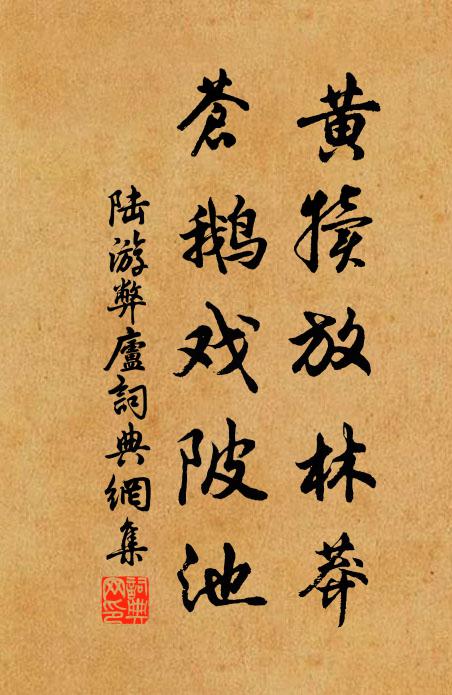 黄犊放林莽
苍鹅戏陂池
陆游弊廬詞典網集
詞典網印